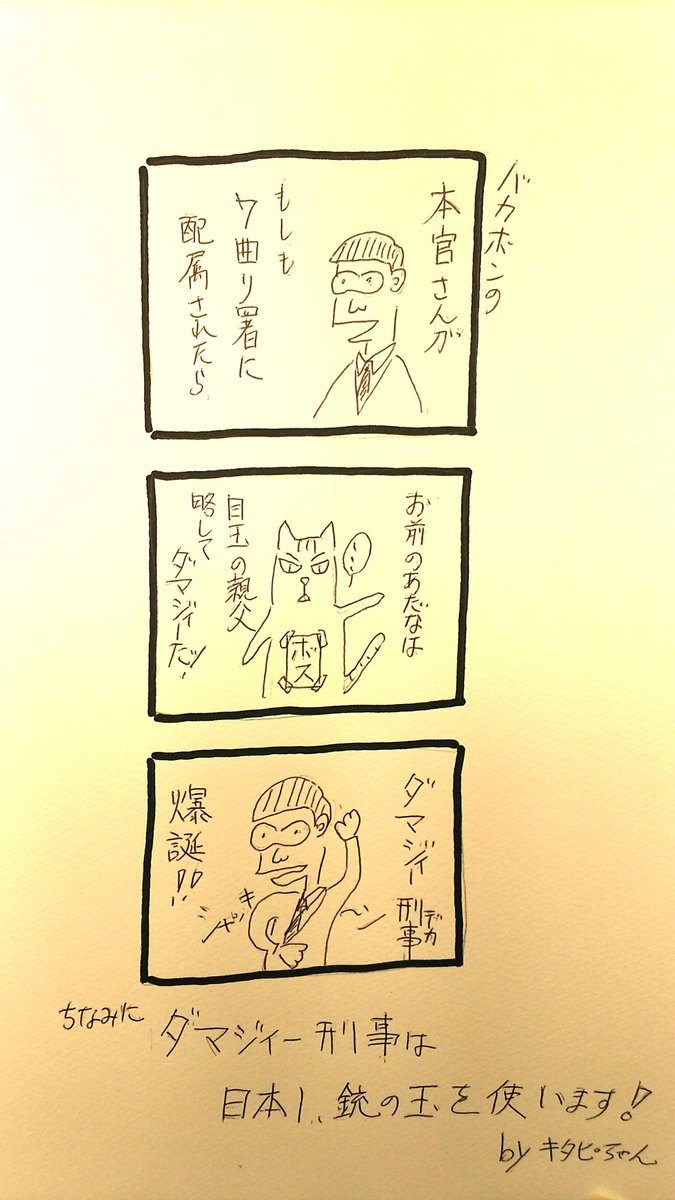 バカボンの
本官さんが
もしも
7曲り署に
配属されたら
お前のあだなは
目玉の親父
略して
ダマジィーだッ!
ボス
ダマジィー刑事
デカ
シャキ
〜ン
爆誕!!
ちなみに
ダマジィー刑事は
日本1、銃の玉を使います!
by キタピーちゃん